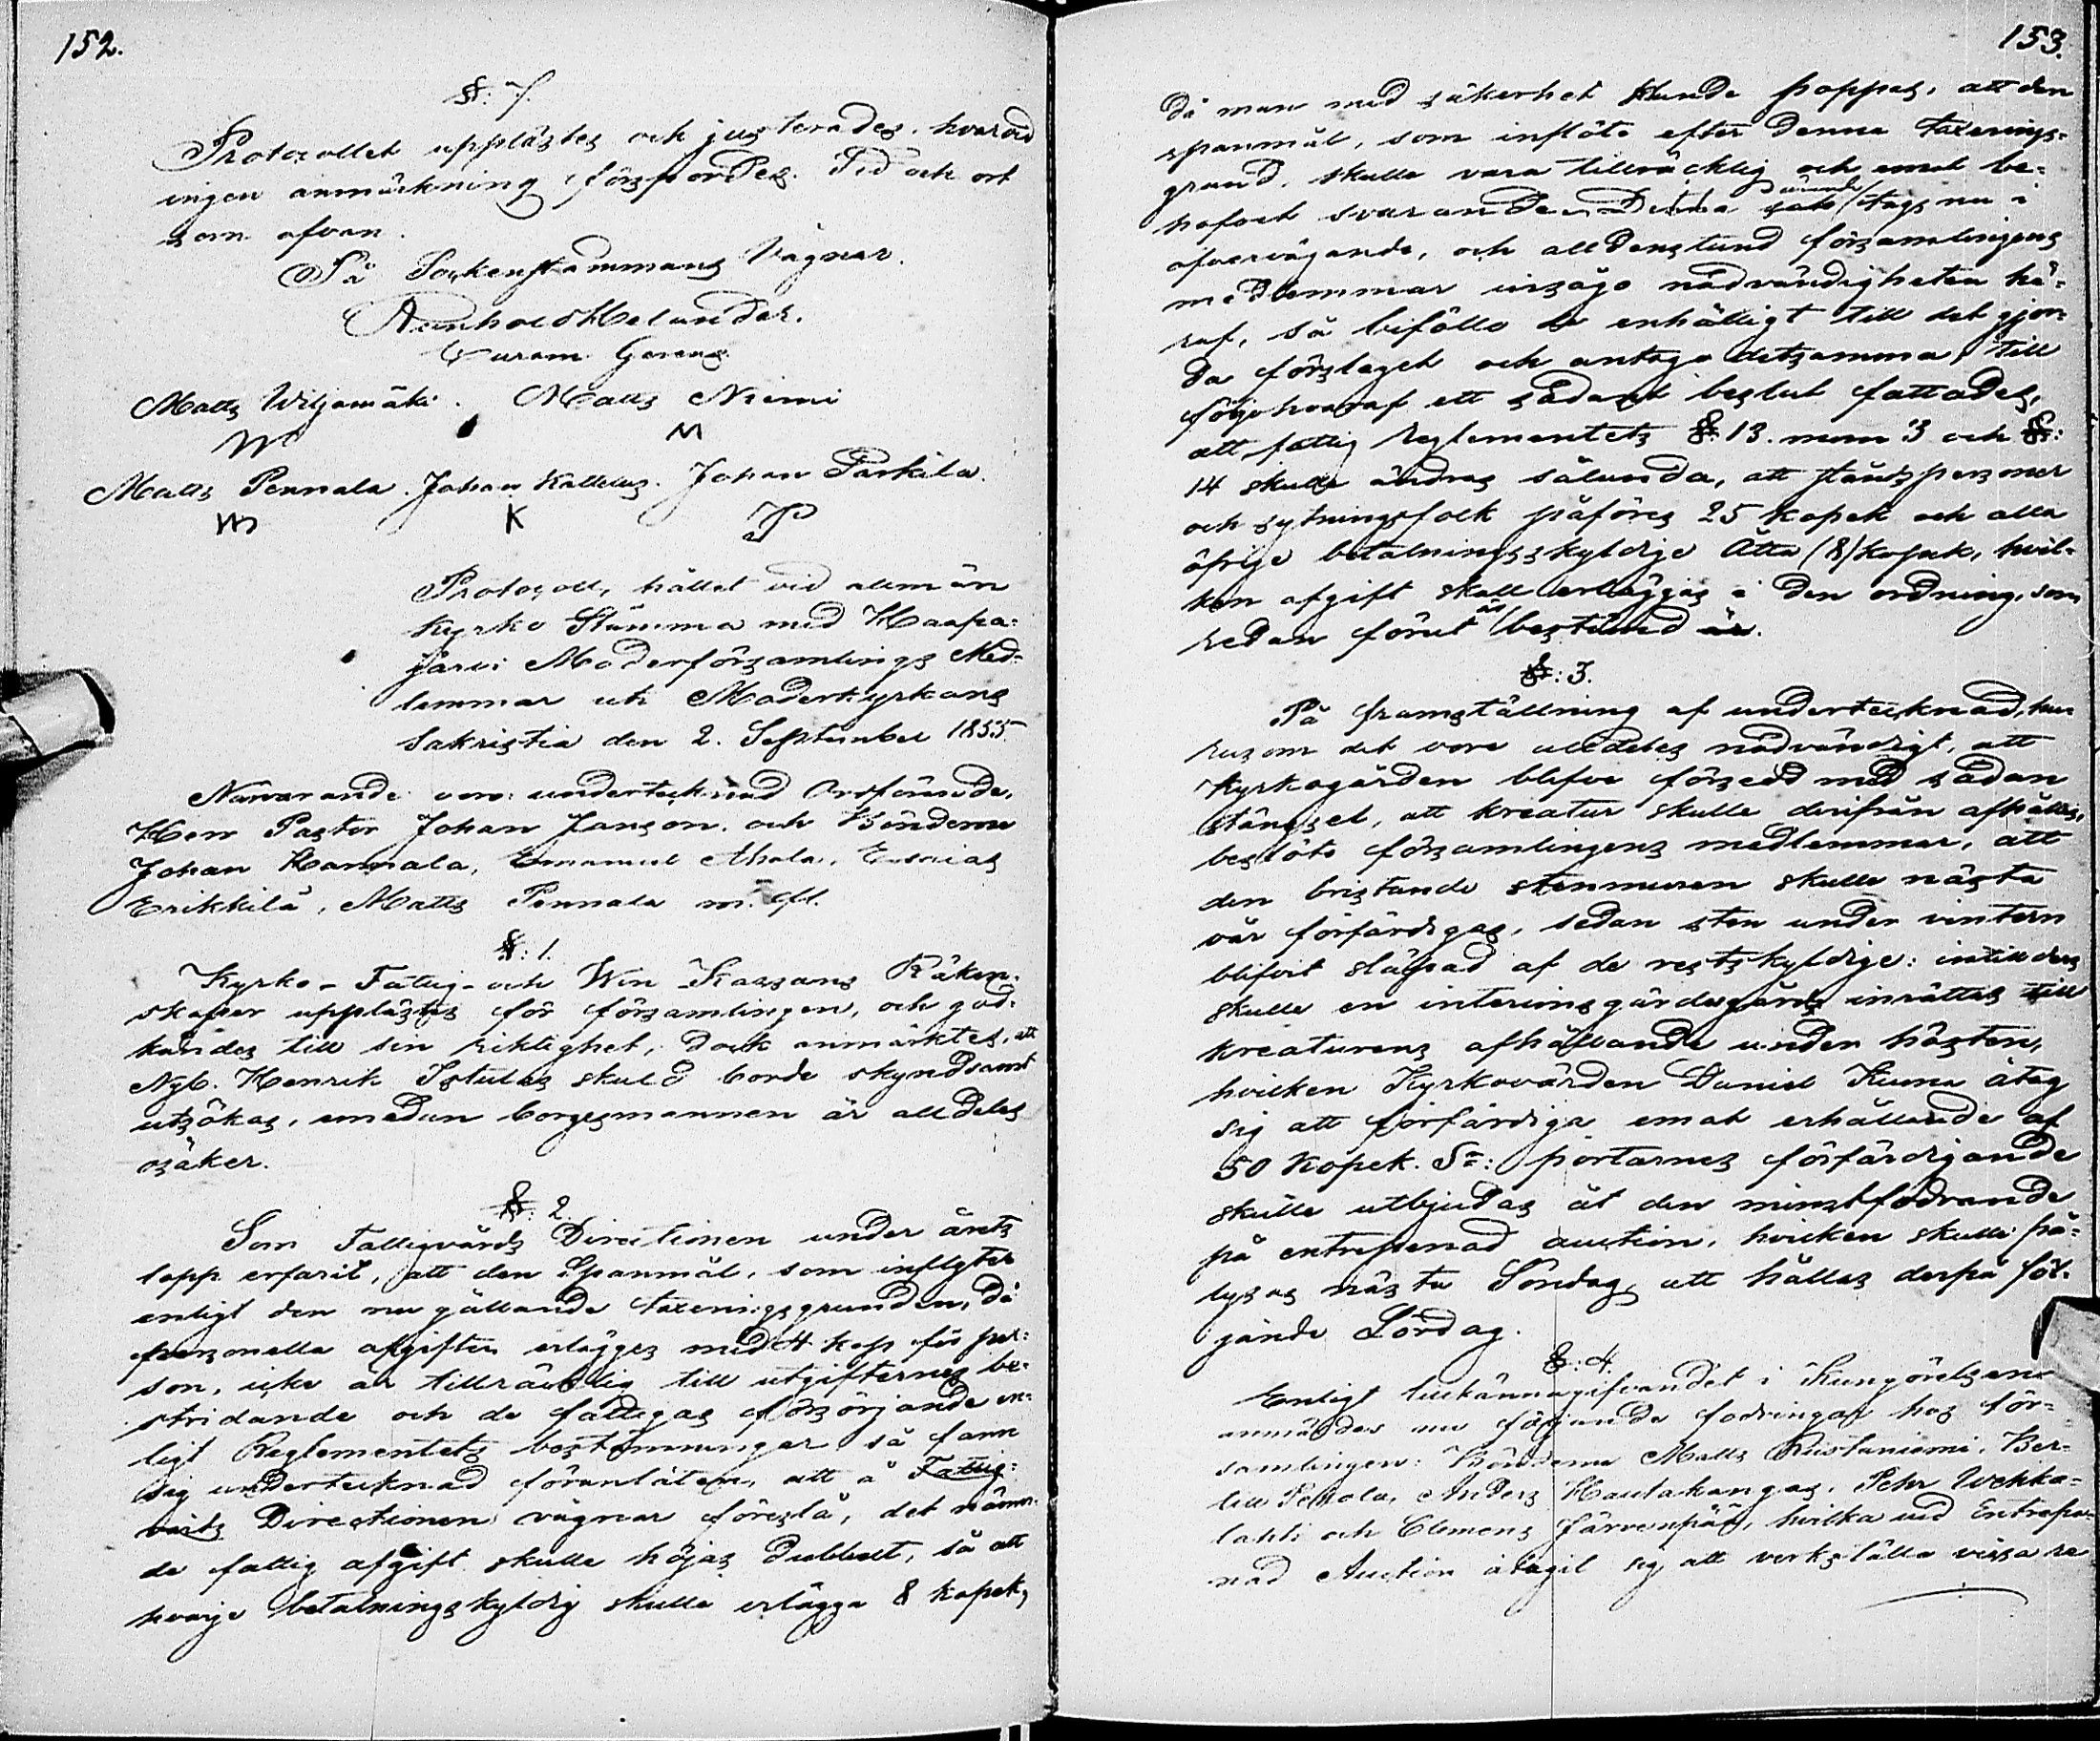 152.
§: 7.
Protocollet upplästes och justerades, hvarvid
ingen anmärkning förspordes. Tid och ort
som ofvan.
På Sockenstämmans Vägnar.
Helander.
Matts Wiljamäki. Matts Niemi
M M
Matts Pennala. Johan Kallelus. Johan Parkila.
M K P
Protocoll, hållet vid allmän
Kyrko Stämma med Haapa-
järvi Moderförsamlings Med-
lemmar uti Moderkyrkans
Sakristia den 2. September 1855.
Närvarande voro: undertecknad Ordförande,
Herr Pastor Johan Janson, och Bönderne
Johan Hannala, Emanuel Ahola, Esaias
Erikkilä, Matts Pennala m. fl.
§: 1.
Kyrko- Fattig- och Win-Kassans Räken-
skaper upplästes för församlingen, och god-
kändes till sin riktighet, dock anmärktes, att
Nyb. Henrik Istulas skuld borde skyndsamt
utsökas, emedan borgesmannen är alldeles
osäker.
§: 2.
Som Fattigvårds Directionen under årets
lopp erfarit, att den Spanmål, som inflyter
enligt den nu gällande taxeringsgrunden, då
personella afgiften erlägges med 4 kop för per-
son, icke är tillräcklig till utgifternes be-
stridande och de fattigas försörjande en-
ligt Reglementets bestämningar så fann
sig undertecknad föranlåten, att å Fattig-
vårds Directionens vägnar föreslå, det nämn-
de fattig afgift skulle höjas dubbelt, så att
hvarje betalningskyldig skulle erlägga 8 kopek,
153.
då man med säkerhet kunde hoppas, att den
spanmål, som inflöte efter denna taxerings-
grund, skulle vara tillräcklig och emot be-
hofvet svarande. Detta sak ärende togs nu i
öfvervägande, och alldenstund församlingens
medlemmar insågo nödvändigheten hä-
raf, så biföllo de enhälligt till det gjor-
da förslaget och antogo detsamma, till
följe hvaraf ett sådant beslut fattades,
att fattig reglementets §: 13. mom 3 och §:
14 skulle ändras sålunda, att ståndspersoner
och sytningsfolk påföres 25 kopek och alla
öfrige betalningsskyldige Åtta (8) kopek, hvil-
ken afgift skall erläggas i den ordning, som
redan förut är bestämd är.
§: 3.
På framställning af undertecknad, hu-
rusom det vore alldeles nödvändigt, att
Kyrkogården blefve försedd med sådan
stängsel, att kreatur skulle derifrån afhållas,
beslöto församlingens medlemmar, att
den bristande stenmuren skulle nästa
vår förfärdigas, sedan sten under vintern
blifvit släpad af de restskyldige: intilldess
skulle en interimsgärdesgård inrättas till
kreaturens afhållande under hösten,
hvilken Kyrkovärden Daniel Kuona åtog
sig att förfärdiga emot erhållande af
50 Kopek. Sr: portarnes förfärdigande
skulle utbjudas åt den minstfodrande
på entreprenad auction, hvilken skulle på-
lysas nästa Söndag, att hållas derpå föl-
jande Lördag.
§: 4.
Enligt tillkännagifvandet i Kungörelsen
anmäldes nu följande fodringar hos för-
samlingen: Bönderne Matts Ruotaniemi, Ber-
till Pessola, Anders Hautakangas, Pehr Wehka-
lahti och Clemens Järvenpää, hvilka vid Entrepre-
nad Auction åtagit sig att verkställa vissa re-